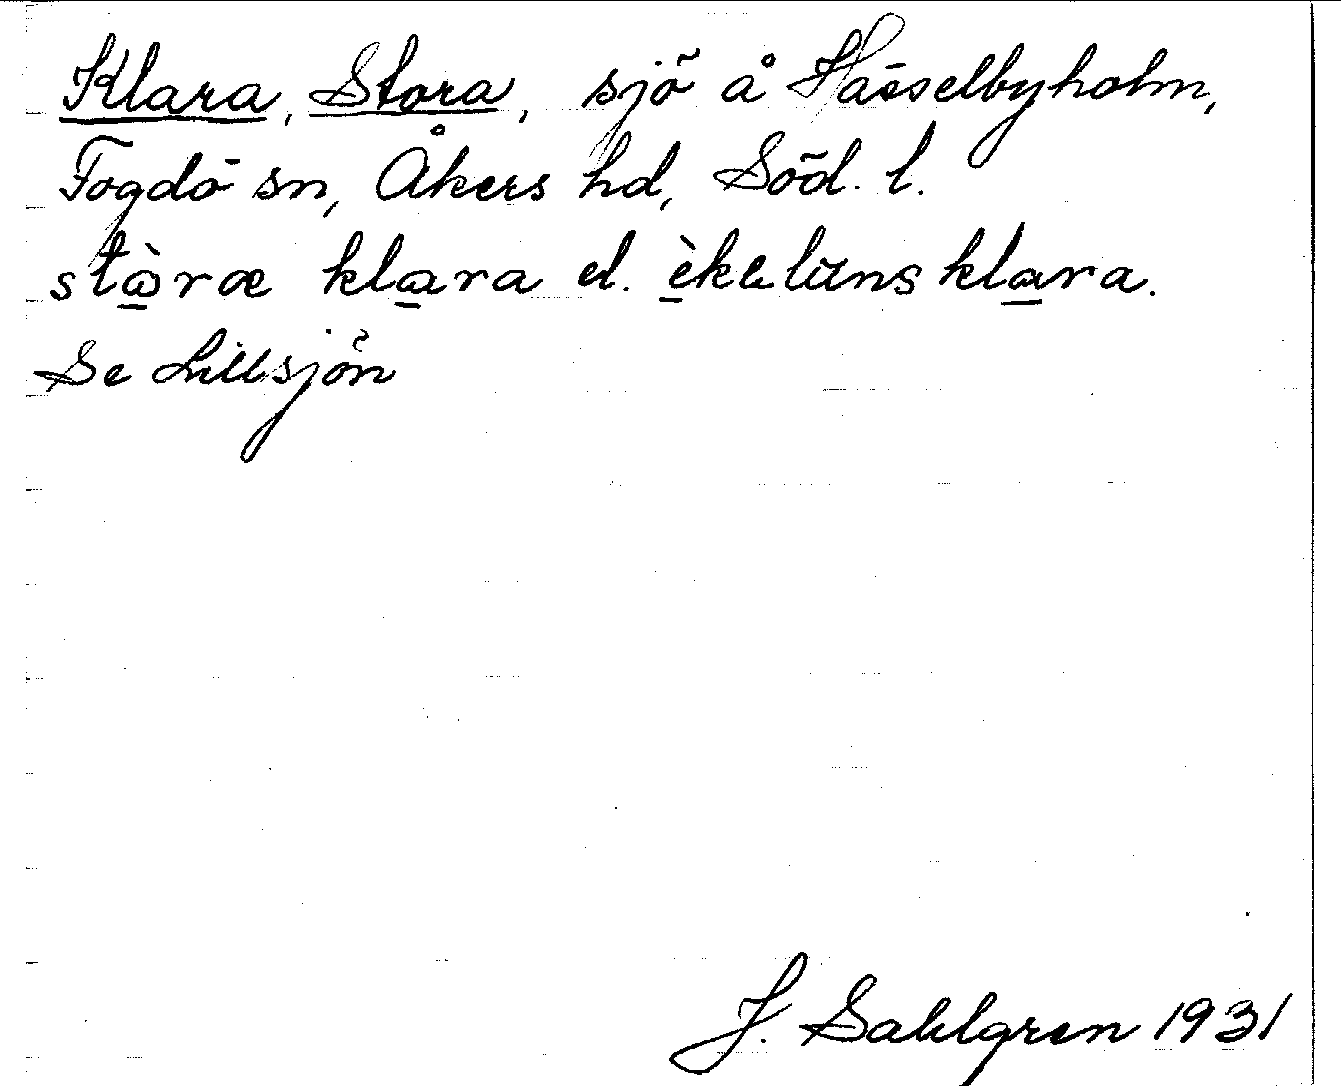 Klara, Stora, sjö å Hässelbyholm,
Fogdö sn, Åkers hd, Söd. l.
stòra klara el. èkelunsklara.
Se Lillsjön
J. Sahlgren 1931